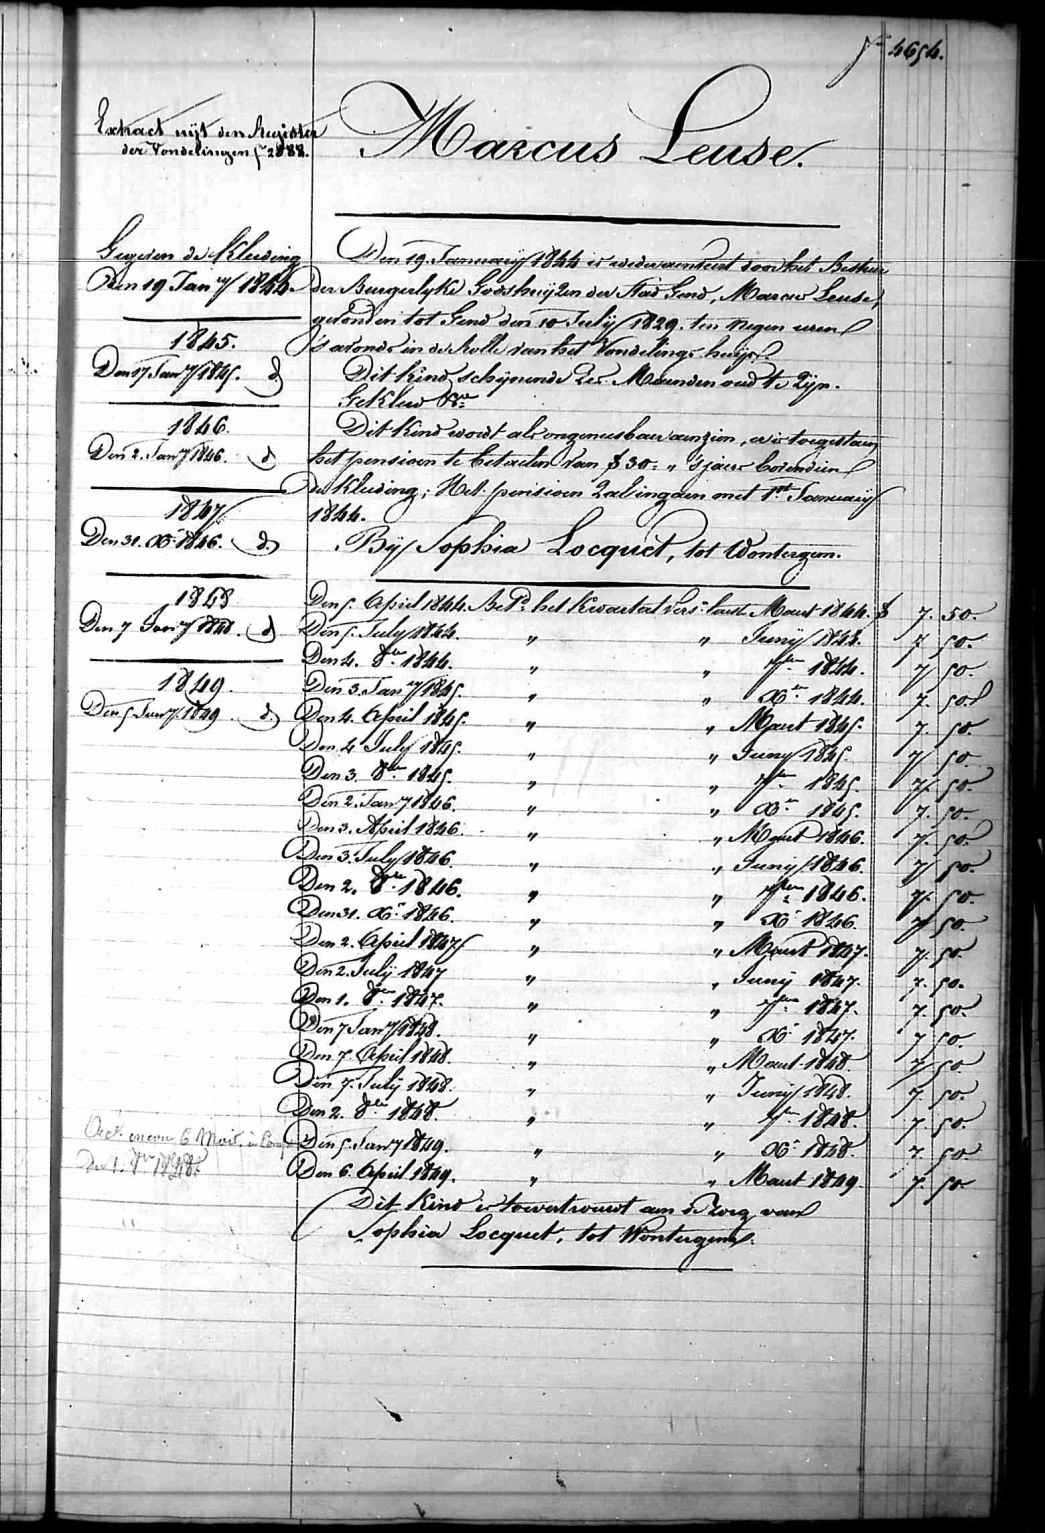 fo 4654.
Extract uijt den Register
der Vondelingen fo 2888.
Marcus Leuse.
Gegeven de Kleeding
Den 19 Jany 1844
1845.
Den 17 Jany 1845. d
1846.
Den 2. Jany 1846. d
1847
Den 31. Xr 1846. d.
1848
Den 7 Jany 1848. d
1849.
Den 5 Jany 1849. d
Den 19 January 1844 is wederomkeert door het Bestuur
der Burgerlyke Godshuijzen der Stad Gend, Marcus Leuse,
gevonden tot Gend den 10 July 1829. ten negen uren
's avonds in de Rolle van het Vondelings huijs.
Dit kind schynende zes Maenden oud te zijn.
Gekleed &a
Dit kind wordt als ongeneesbaer aenzien, er is toegestaen
het pensioen te betaelen van $ 30 = " 's jaers bovendien
de Kleeding; Het pensioen zal ingaen met 1st January
1844.
Bij Sophia Locquet, tot Wontergem.
Den 5. April 1844. Bet. het kwartael vers. laest Maert 1844. $ 7. 50.
Den 5. July 1844. " " Juny 1844. 7 50.
Den 4. 8ber 1844. " " 7ber 1844. 7 50.
Den 3. Jany 1845. " " Xr 1844. 7. 50.
Den 4. April 1845. " " Maert 1845. 7. 50.
Den 4 July 1845. " " Juny 1845. 7 50.
Den 3. 8ber 1845. " " 7ber 1845. 7. 50.
Den 2. Jany 1846. " " Xr 1845. 7. 50.
Den 3. April 1846. " " Maert 1846. 7. 50.
Den 3. July 1846. " " Juny 1846. 7 50.
Den 2. 8ber 1846. " " 7ber 1846. 7. 50.
Den 31. Xr 1846. " " Xr 1846. 7 50.
Den 2. April 1847 " " Maert 1847. 7. 50.
Den 2. July 1847 " " Juny 1847. 7. 50.
Den 1. 8ber 1847. " " 7ber 1847. 7. 50.
Den 7 Jany 1848. " " Xr 1847. 7 50.
Den 7. April 1848. " " Maert 1848. 7 50
Den 7. July 1848. " " Juny 1848. 7. 50.
Den 2. 8ber 1848. " " 7ber 1848. 7. 50.
Den 5. Jany 1849. " " Xr 1848. 7. 50.
Den 6. April 1849. " " Maert 1849. 7. 50.
encore 6 Mois
1848.
Dit kind is toevertrouwt aen de zorg van
Sophia Locquet, tot Wontergem.